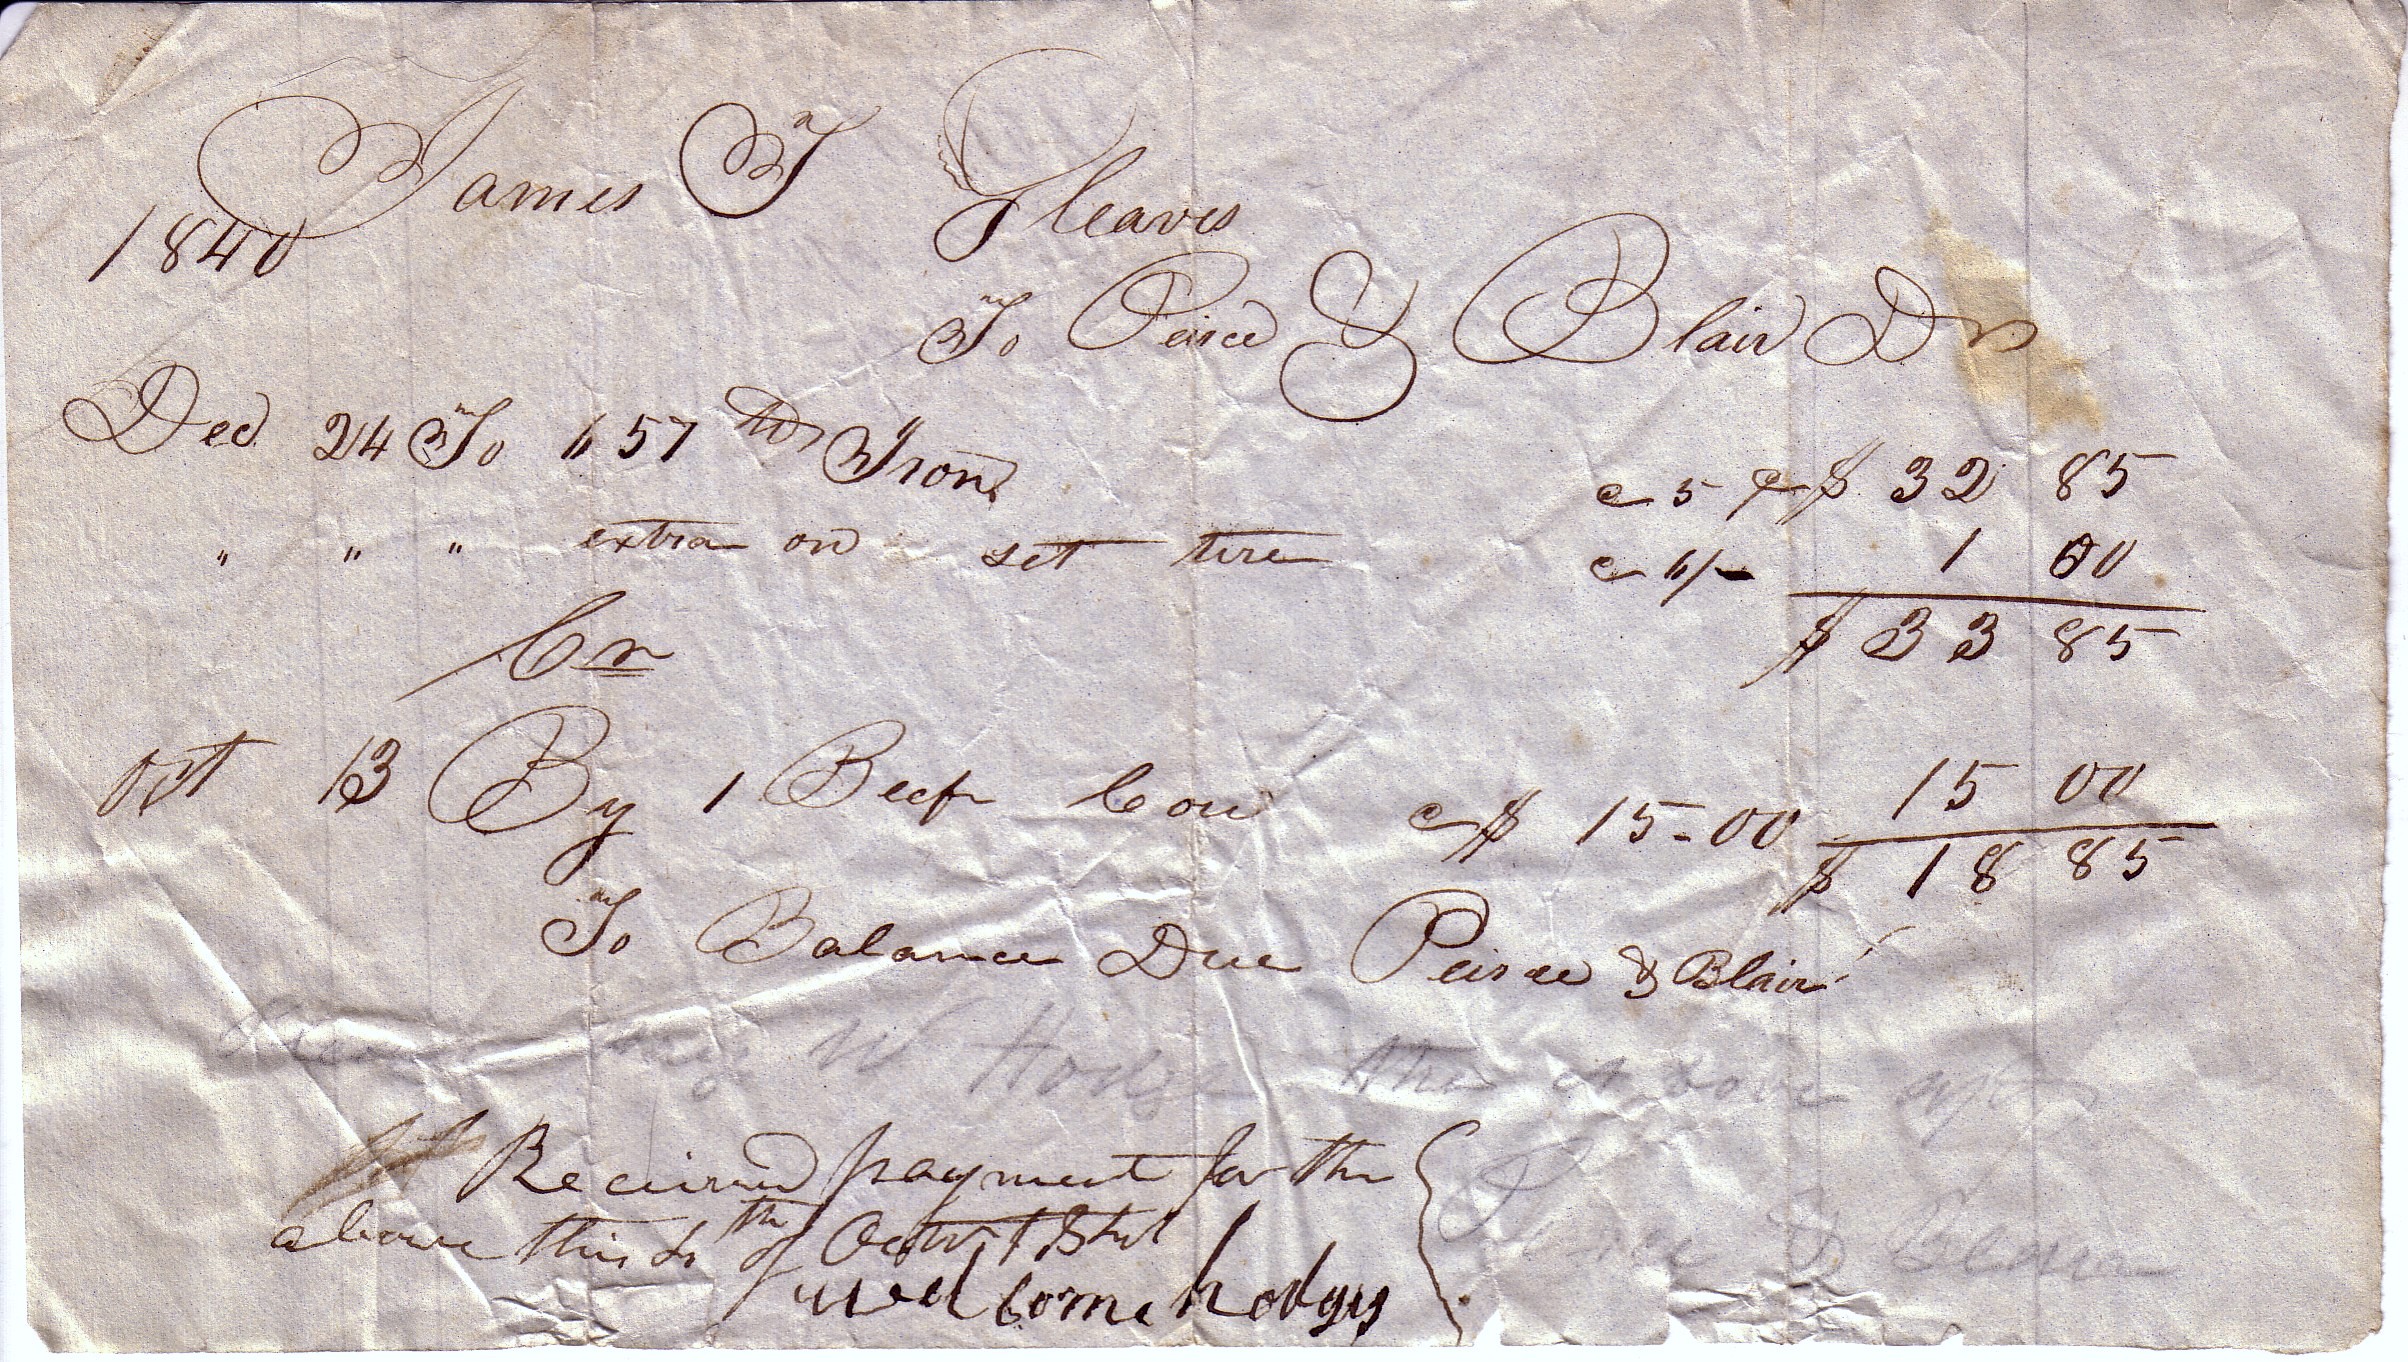 James T Gleaves
1840
To Peirce & Blair Dr
Dec 24 To 657 lbs Iron @ 5 ¢ $ 32 85
" " " extra on set tire @ 6/- 1 00
$ 33 85
Cr
Oct 13 By 1 Beef Cow @ $ 15-00 15 00
$ 18 85
To Balance Due Peirce & Blair
W Hodge the above
Received payment for the
above this th of
wellcome hodges
& Blair